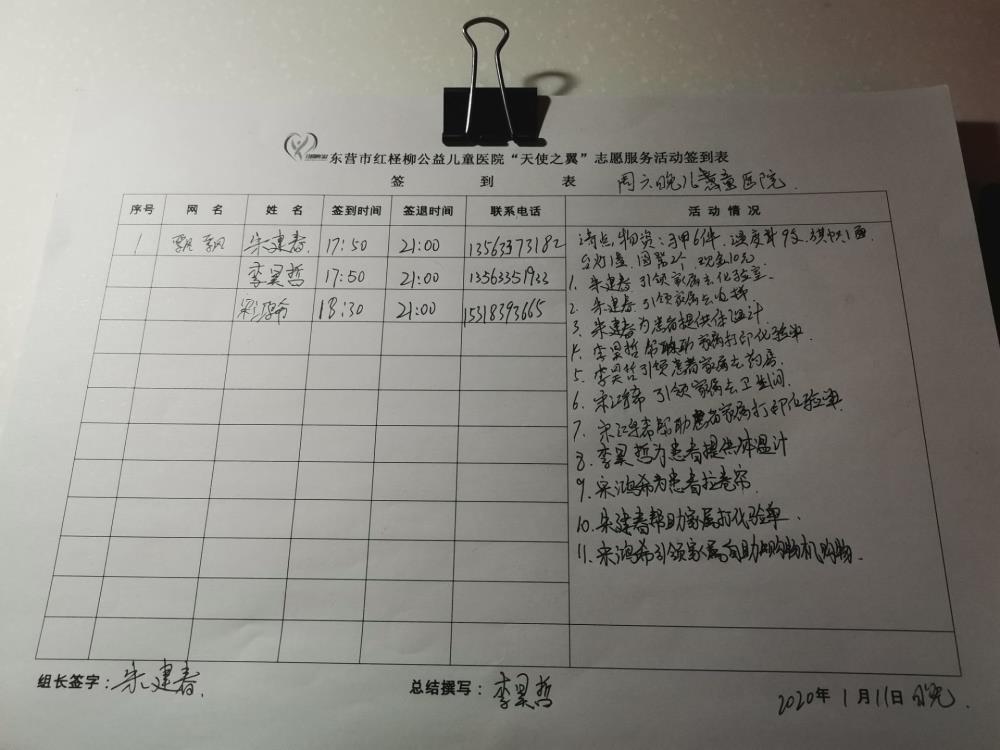 东营市红柽柳公益儿童医院“天使之翼”志愿服务活动签到表
签 到 表 周六晚儿童医院.
序号 网 名 姓 名 签到时间 签退时间 联系电话 活 动 情 况
1 飘飘 朱建春. 17:50 21:00 13563373182
清点,物资:马甲6件. 温度计9支. 旗帜1面.
现金10元
李昊哲 17:50 21:00 13563351933
宋鸿希 18:30 21:00 15318393665
1. 朱建春 引领家属去化验室.
2. 朱建春 引领家属去电梯
3. 朱建春为患者提供体温计
4. 李昊哲帮助家属打印化验单.
5. 李昊哲引领患者家属去药房.
6. 宋鸿希 引领家属去卫生间.
7. 宋鸿希帮助患者家属打印化验单
8. 李昊哲为患者提供体温计
9. 宋鸿希为患者拉卷帘.
10. 朱建春帮助家属打化验单.
11. 宋鸿希引领家属自助购物机购物.
组长签字: 朱建春.
总结撰写: 李昊哲
2020年 1月11日 晚.